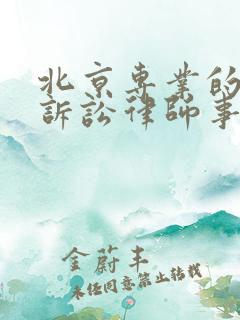 北京専業的
訴訟律師事
金蔚丰
未经同意禁止转载